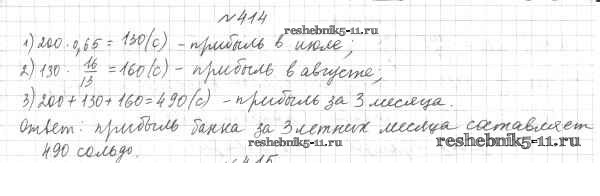 №414
reshebnik5-11.ru
1) 200 · 0,65 = 130 (с) - прибыль в июле;
2) 130 · 16/13 = 160 (с) - прибыль в августе;
3) 200 + 130 + 160 = 490 (с) - прибыль за 3 месяца.
Ответ: прибыль банка за 3 летних месяца составляет
490 сольдо.
reshebnik5-11.ru
№415